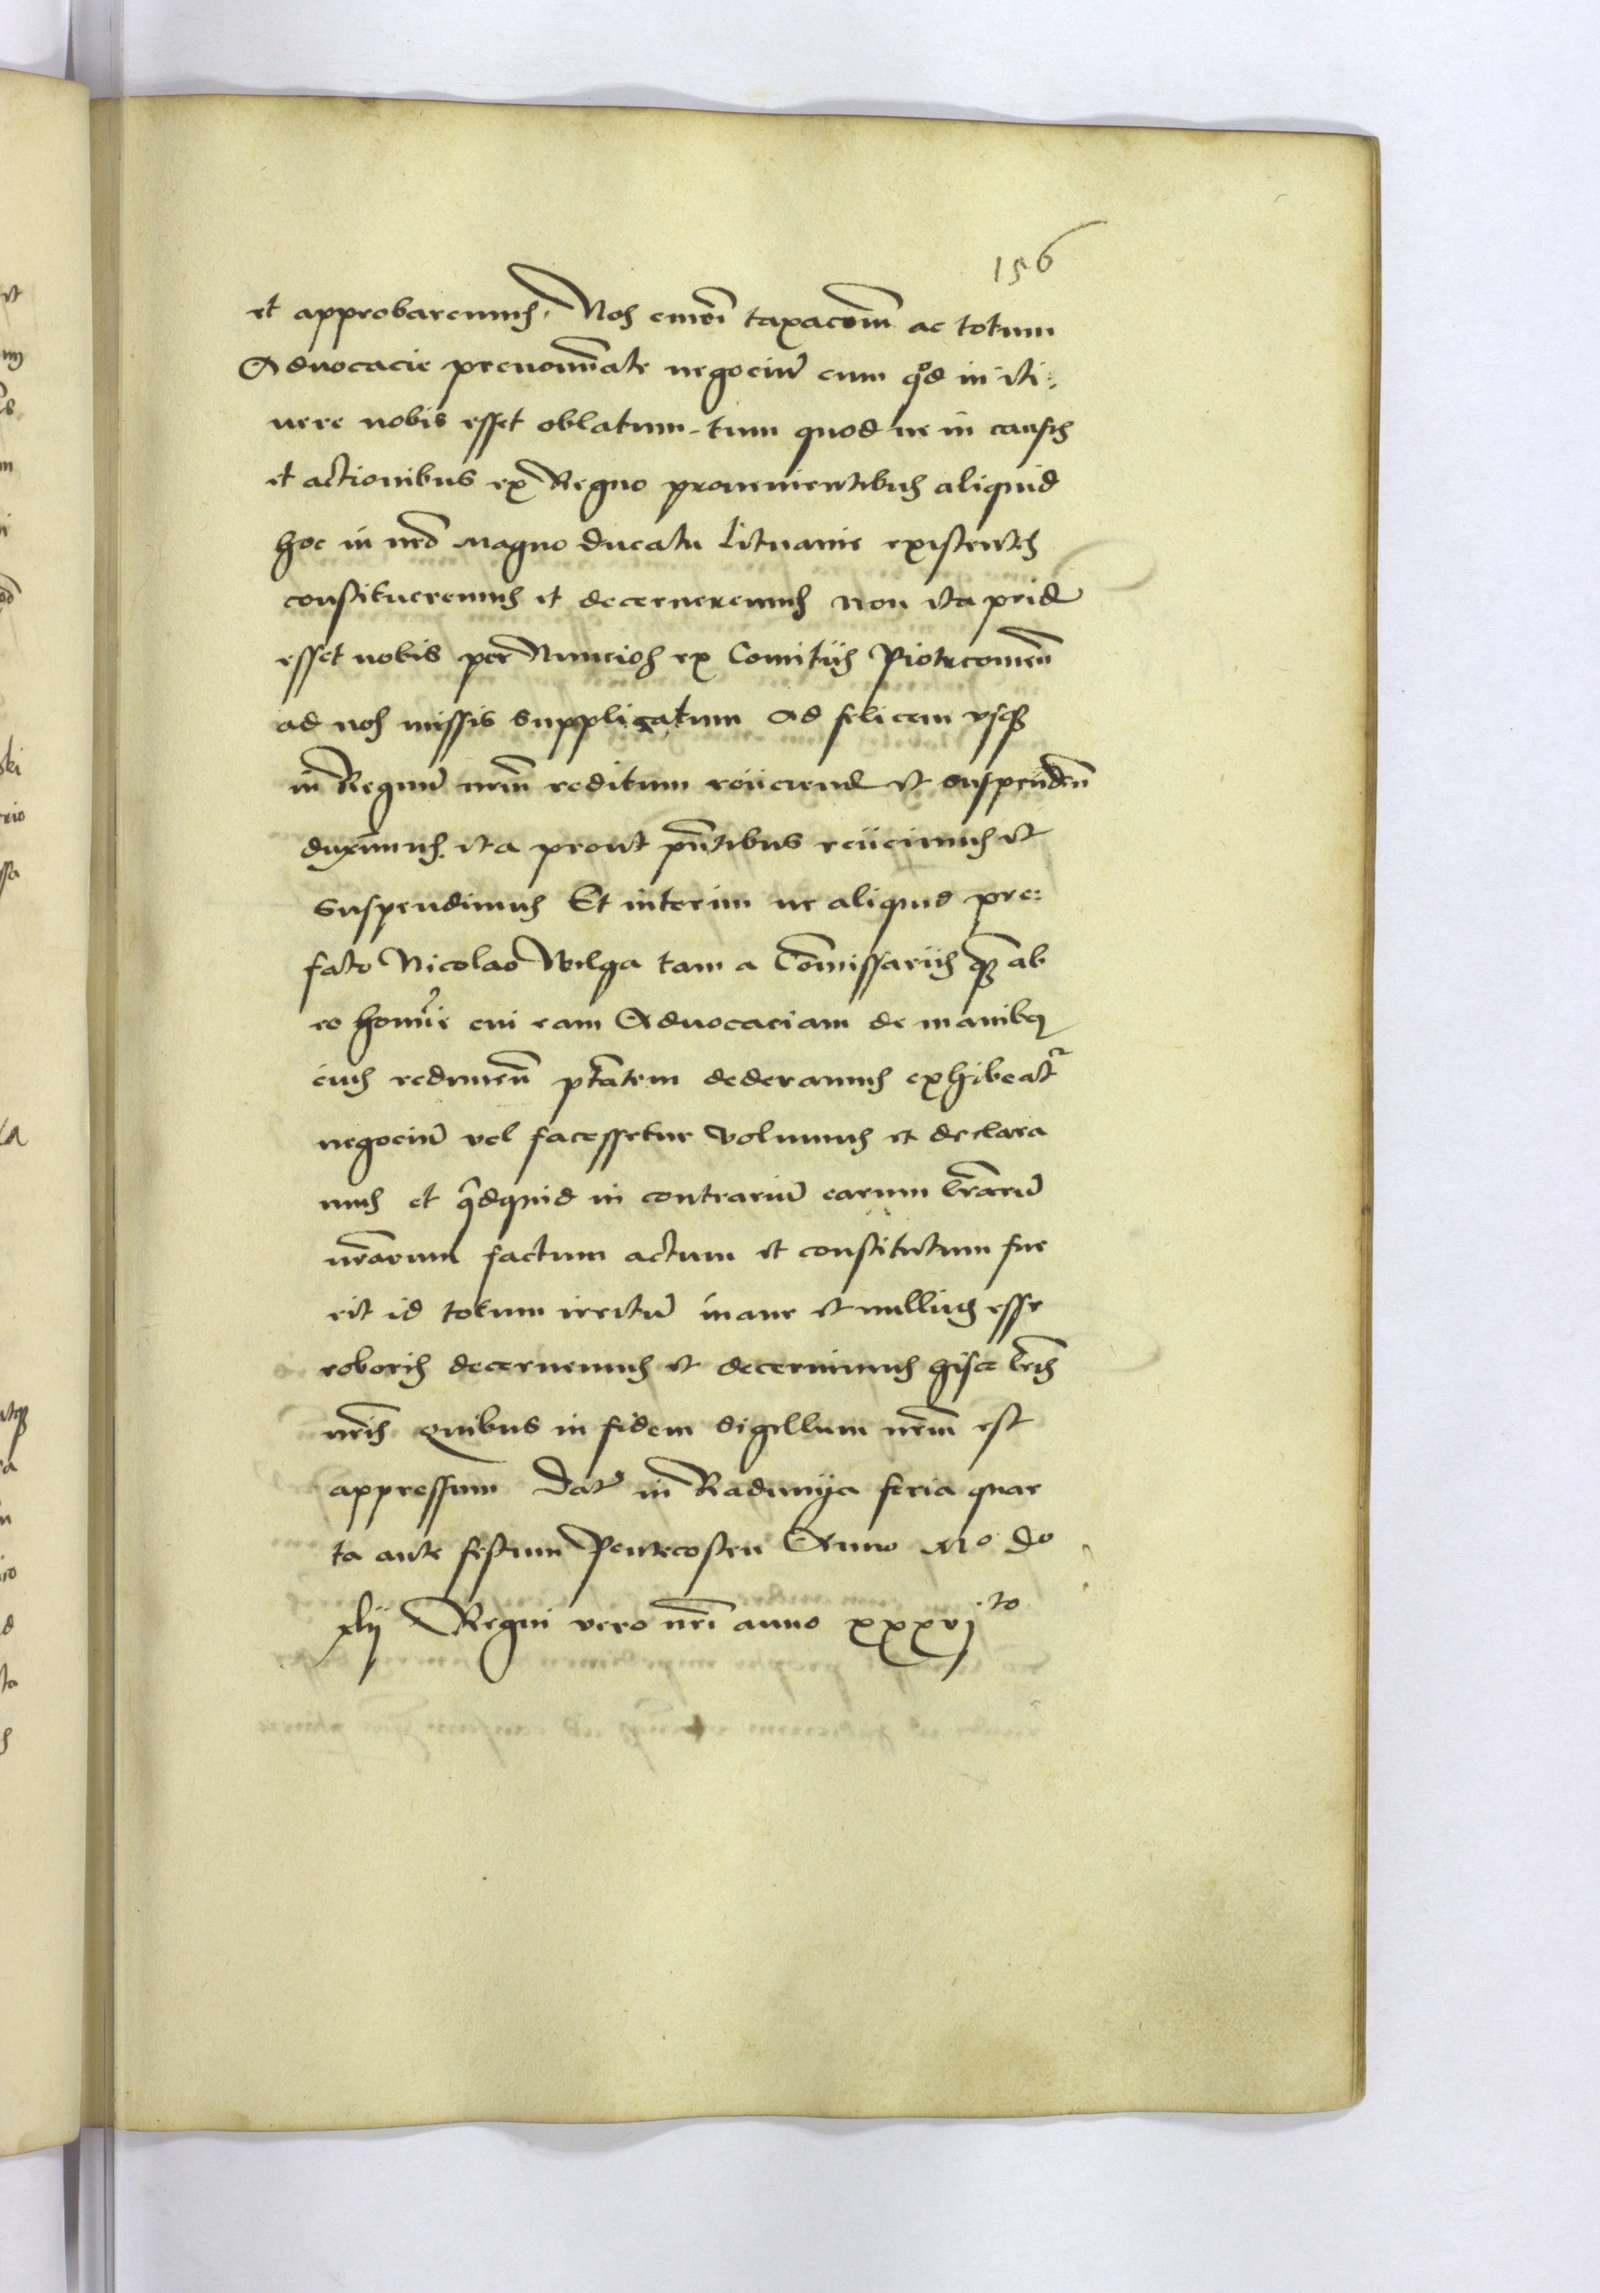 156
et approbaremus. Nos em̄ eā taxacōm ac totum
Aduocacie prenoīate negociū cum qd in iti:
nere nobis esset oblatum, tum quod ne in causis
et actionibus ex Regno prouenientibus aliquid
hoc in nrō Magno Ducatu Lituanie existentes
constitueremus et decerneremus non ita prid
esset nobis per Nuncios ex Comitijs Piotrcouien̄
ad nos missis supplicatum ad felicem vsq
in Regnū nrm̄ reditum reijciend et suspenden̄
duximus. ita prout pn̄tibus reijcimus et
suspendimus Et interim ne aliquid pre:
fato Nicolao Wilga tam a Com̄issarijs q̄ ab
eo homīe cui eam Aduocaciam de manibus
eius redimen̄ ptātem dederamus exhibeatr
negociū vel facessetur volumus et declara
mus et qdquid in contrariū earum lrārū
nrārum factum actum et constitutum fue
rit id totum irritū inane et nullius esse
roboris decernemus et decernimus hisce lrīs
nrīs Quibus in fidem sigillum nrm̄ est
appressum Dat in Radunija feria quar
ta ante festum Pentecosten Anno Mo do
xlij Regni vero nrī anno xxxvjto